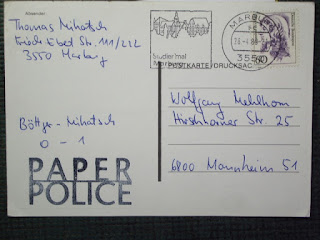 Absender:
Thomas Mihatsch
Friedr. Ebert Str. 111/212
3550 Marburg
Böttger - Mihatsch
0 - 1
PAPER
POLICE
Studier mal
Marburg
POSTKARTE/DRUCKSACHE
MARBURG
3550
Wolfgang Mehlhorn
Hirschhorner Str. 25
6800 Mannheim 51